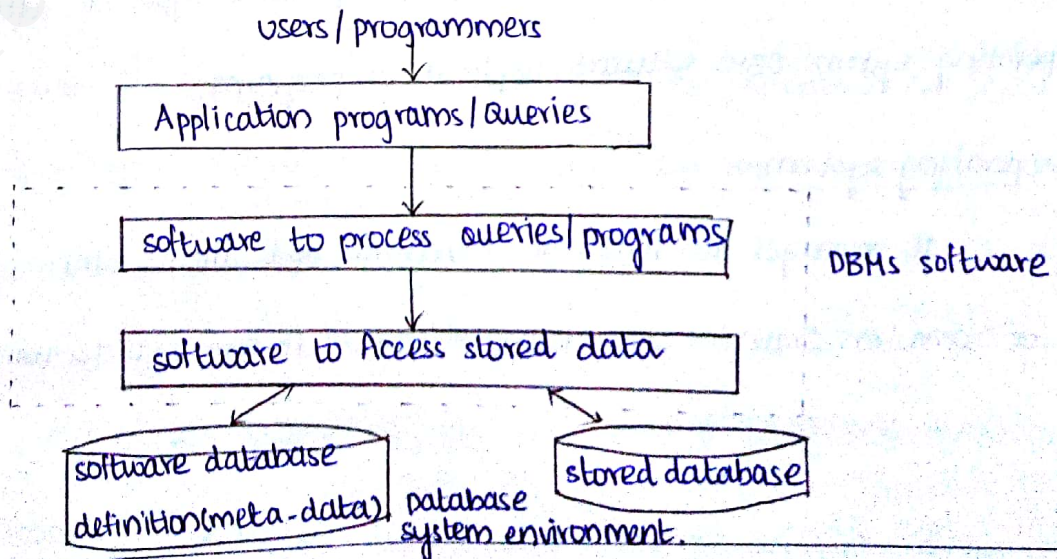 users/programmers
Application programs/Queries
software to process queries/programs
DBMs software
software to Access stored data
software database
definition(meta-data)
stored database
Database
system environment.